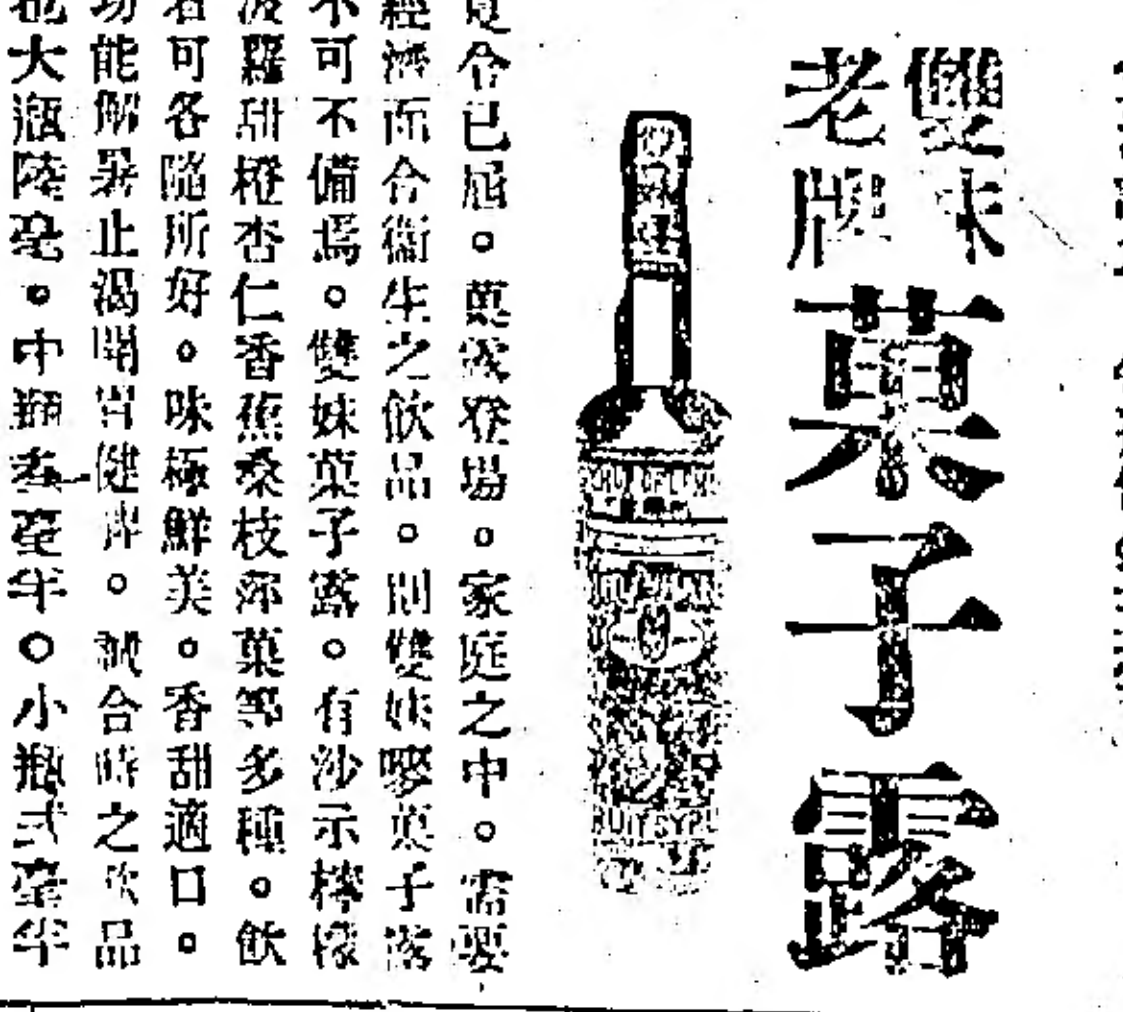 雙妹
老牌
菓子露
令已屆。菓子登場。家庭之中。需要
經濟而合衞生之飲品。則雙妹嘜菓子露
不可不備焉。雙妹菓子露。有沙示檸檬
波羅甜橙杏仁香蕉桑枝菓等多種。飲
者可各隨所好。味極鮮美。香甜適口。
功能解暑止渴開胃健脾。誠合時之飲品
也大瓶陸毫。中瓶毫半。小瓶弍毫半